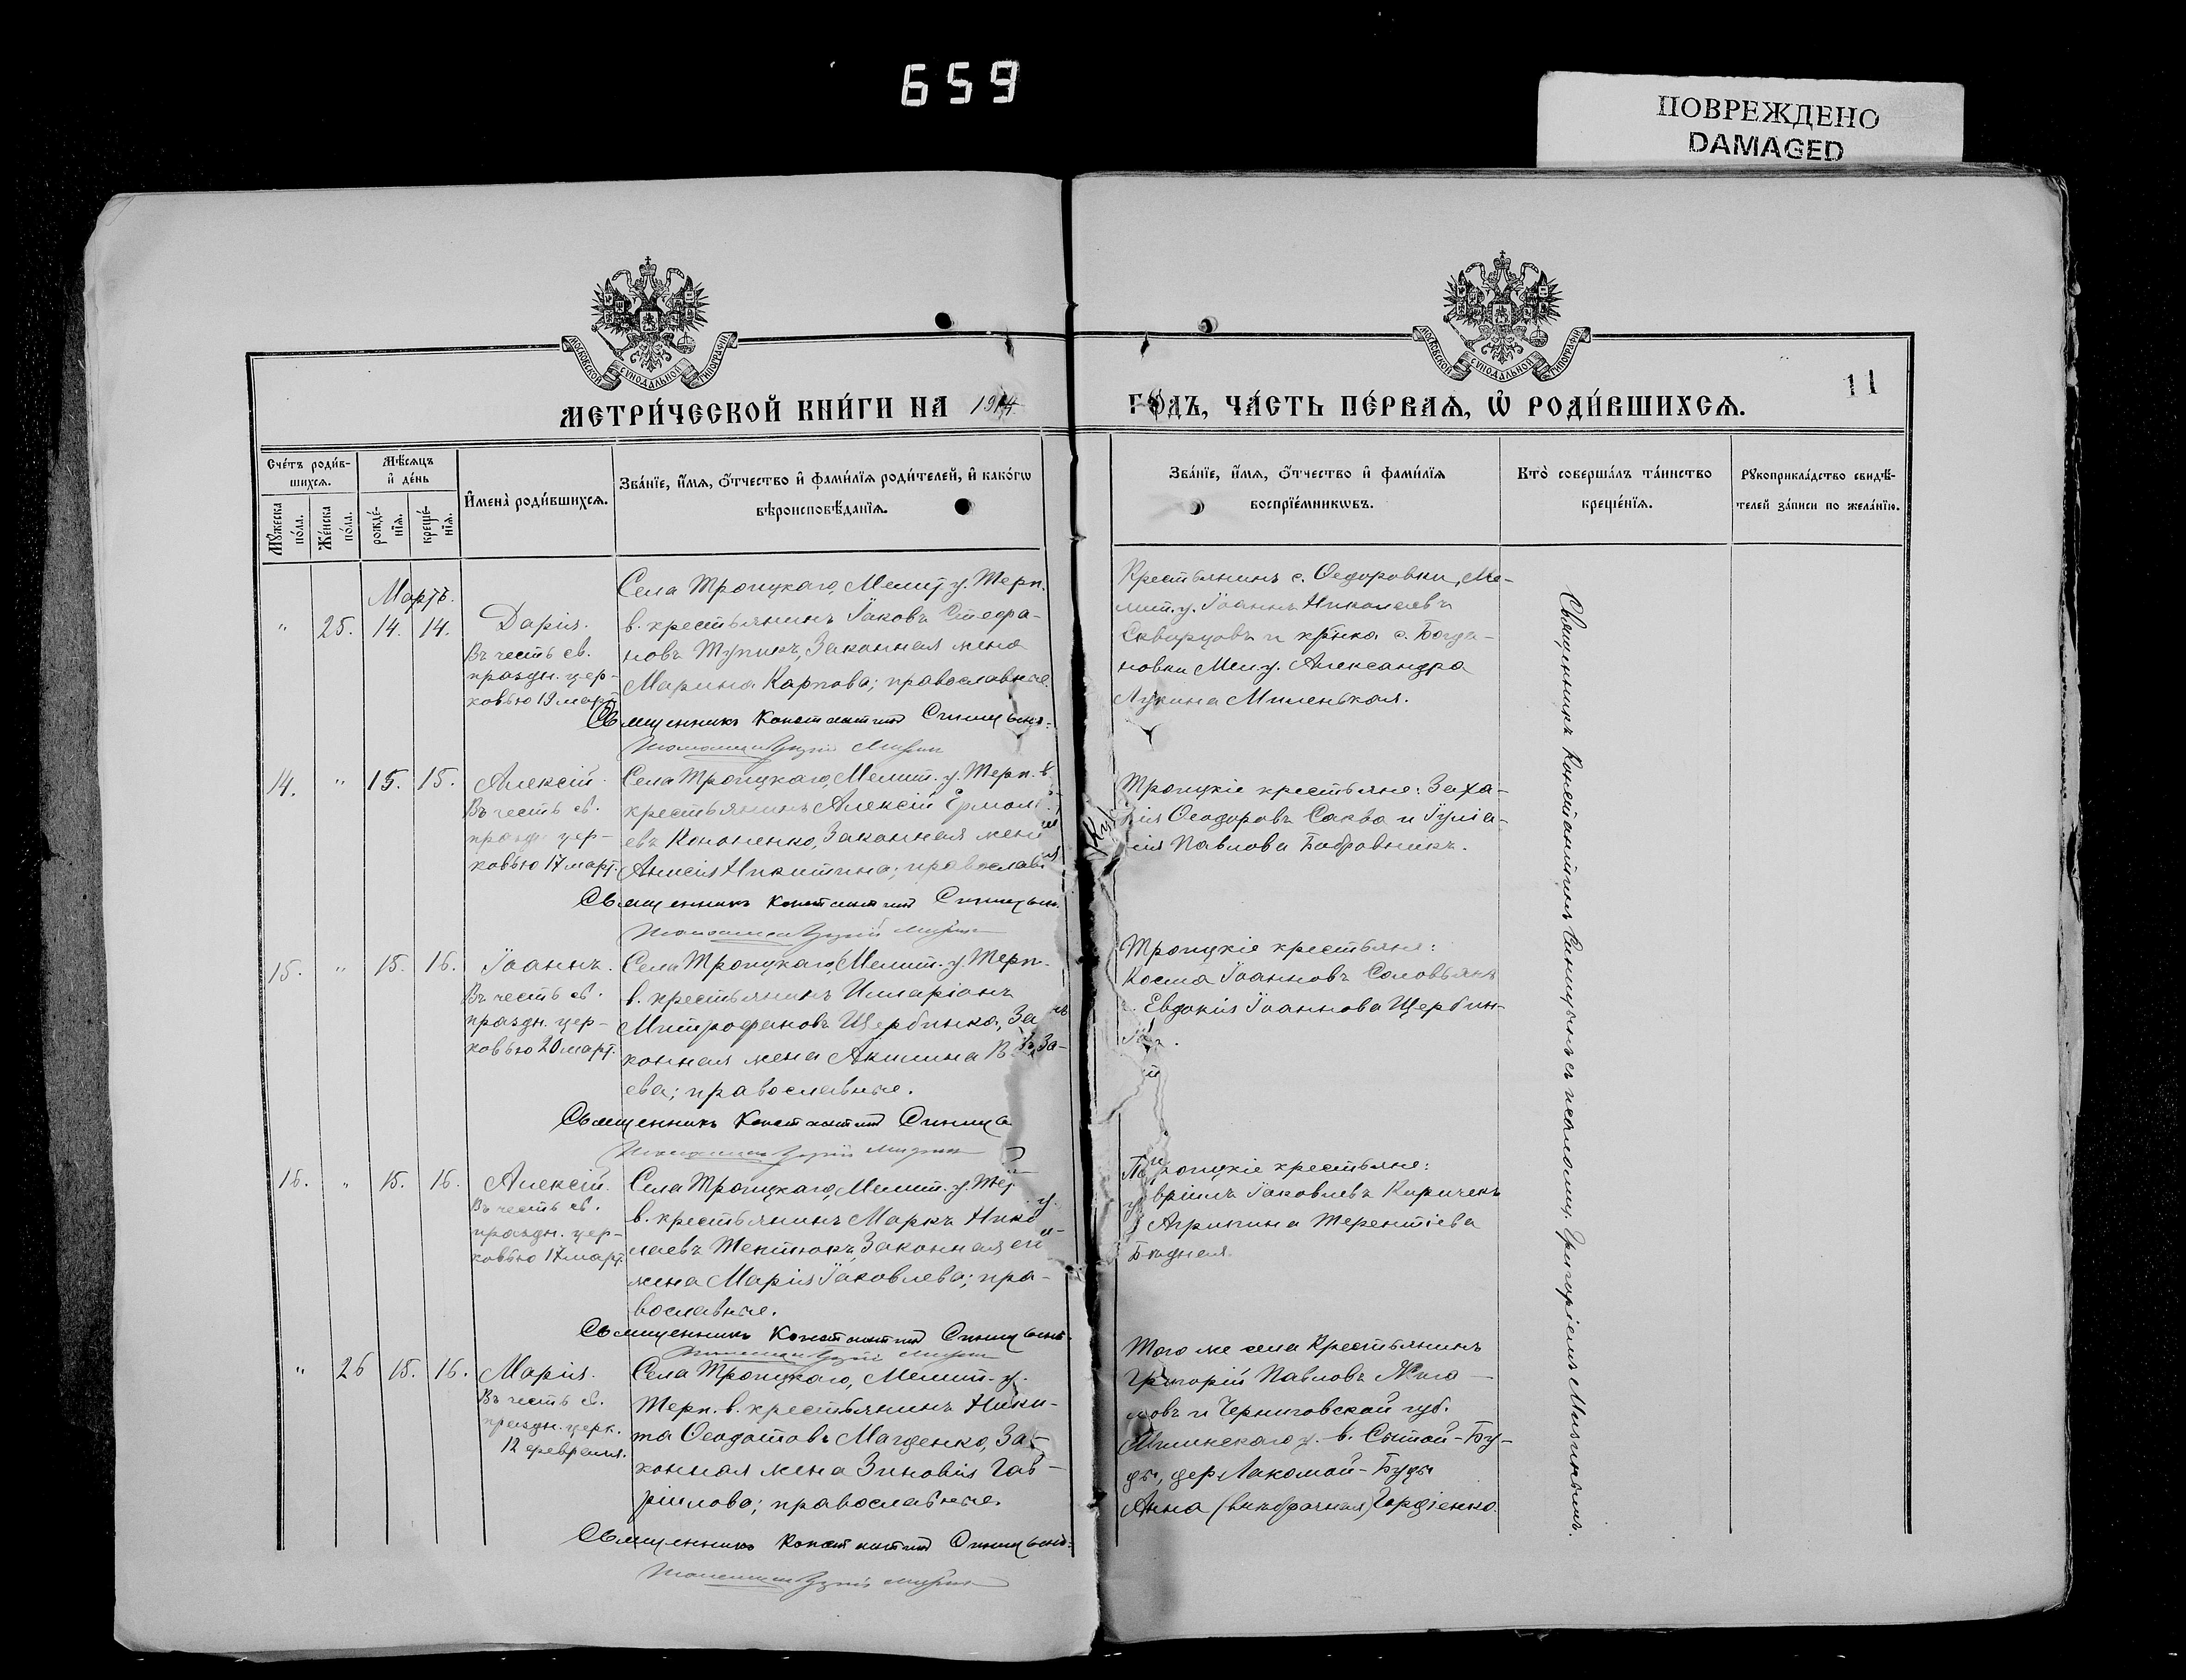 659
ПОВРЕЖДЕНО
DAMAGED
МОСКОВСКОЙ СѴНОДАЛЬНОЙ ТИПОГРАФІИ
МОСКОВСКОЙ СѴНОДАЛЬНОЙ ТИПОГРАФІИ
МЕТРИ́ЧЕСКОЙ КНИ́ГИ НА 1914 ГО́ДЪ, ЧА́СТЬ ПЕ́РВАѦ, Ѡ҆ РОДИ́ВШИХСѦ.
11
Сче́тъ роди́в-
шихсѧ.
Мꙋ́жеска по́ла.
Же́нска по́ла.
Мѣ́сѧцъ
и҆ де́нь
рожде́-
нїѧ.
креще́-
нїѧ.
И҆мена̀ роди́вшихсѧ.
Зва́нїе, и҆́мѧ, ѻ҆́тчество и҆ фами́лїѧ роди́телей, и҆ како́гѡ
вѣроисповѣ́данїѧ.
Зва́нїе, и҆́мѧ, ѻ҆́тчество и҆ фами́лїѧ
воспрїе́мникѡвъ.
Кто̀ соверша́лъ та́инство
креще́нїѧ.
Рꙋкоприкла́дство свидѣ́-
телей за́писи по жела́нїю.
Мартъ.
" 25. 14. 14. Дарія.
Въ честь св.
праздн. цер-
ковью 19 март.
Села Троицкаго, Мелит. у. Терп.
в. крестьянинъ Іаковъ Стефа-
новъ Тупикъ, Законная жена
Марина Карпова; православные.
Священникъ Константинъ Синицынъ.
Крестьянинъ с. Ѳедоровки, Ме-
лит. у. Іоаннъ Николаевъ
Скворцовъ и кр-нка с. Богда-
новки Мел. у. Александра
Лукина Миленькая.
14. " 15. 15. Алексій.
Въ честь св.
праздн. цер-
ковью 17 март.
Села Троицкаго, Мелит. у. Терп. в.
крестьянинъ Алексій Ермола-
евъ Кононенко, Законная жена
Анисія Никитина; православ
Священникъ Константинъ Синицынъ.
Троицкіе крестьяне: Заха-
рія Ѳеодоровъ Саква и Іуліа-
нія Павлова Бобровникъ.
15. " 15. 16. Іоаннъ.
Въ честь св.
праздн. цер-
ковью 20 март.
Села Троицкаго, Мелит. у. Терп.
в. крестьянинъ Иларіонъ
Митрофановъ Щербинка, За-
конная жена Акилина
ева; православные.
Священникъ Константинъ Синицы
Троицкіе крестьяне:
Косма Іоанновъ Соловьянъ
Евдокія Іоаннова Щербин-
16. " 15. 16. Алексій.
Въ честь св.
праздн. цер-
ковью 17 март.
Села Троицкаго, Мелит. у. Тер
в. крестьянинъ Маркъ Нико
лаевъ Тентюкъ, Законная его
жена Марія Іаковлева; пра-
вославные.
Священникъ Константинъ Синицынъ.
Троицкіе крестьяне:
вріилъ Іаковлевъ Кириченъ
Агрипина Терентіева
Бѣдная.
" 26 15. 16. Марія.
Въ честь св.
праздн. церк.
12 февраля.
Села Троицкаго, Мелит. у.
Терп. в. крестьянинъ Ники-
та Ѳеодотовъ Магденко, За-
конная жена Зиновія Гав-
ріилова; православные.
Священникъ Константинъ Синицынъ.
Того же села Крестьянинъ
Григорій Павловъ
и Черниговской губ.
Мглинскаго у. в. Сытой-Бу-
ды, дер. Лакомой-Буды
Анна (внебрачная) Гордіенко.
Священникъ Константинъ Синицынъ съ псаломщ. Григоріемъ Мизинымъ.